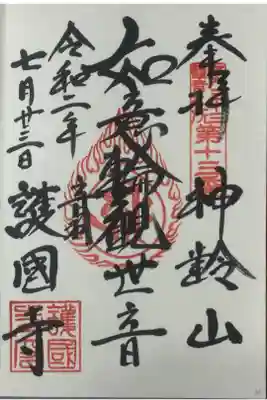 奉拝 神齡山
第十三
如意輪觀世音
音羽
令和二年
七月廿三日
護國寺
護國寺